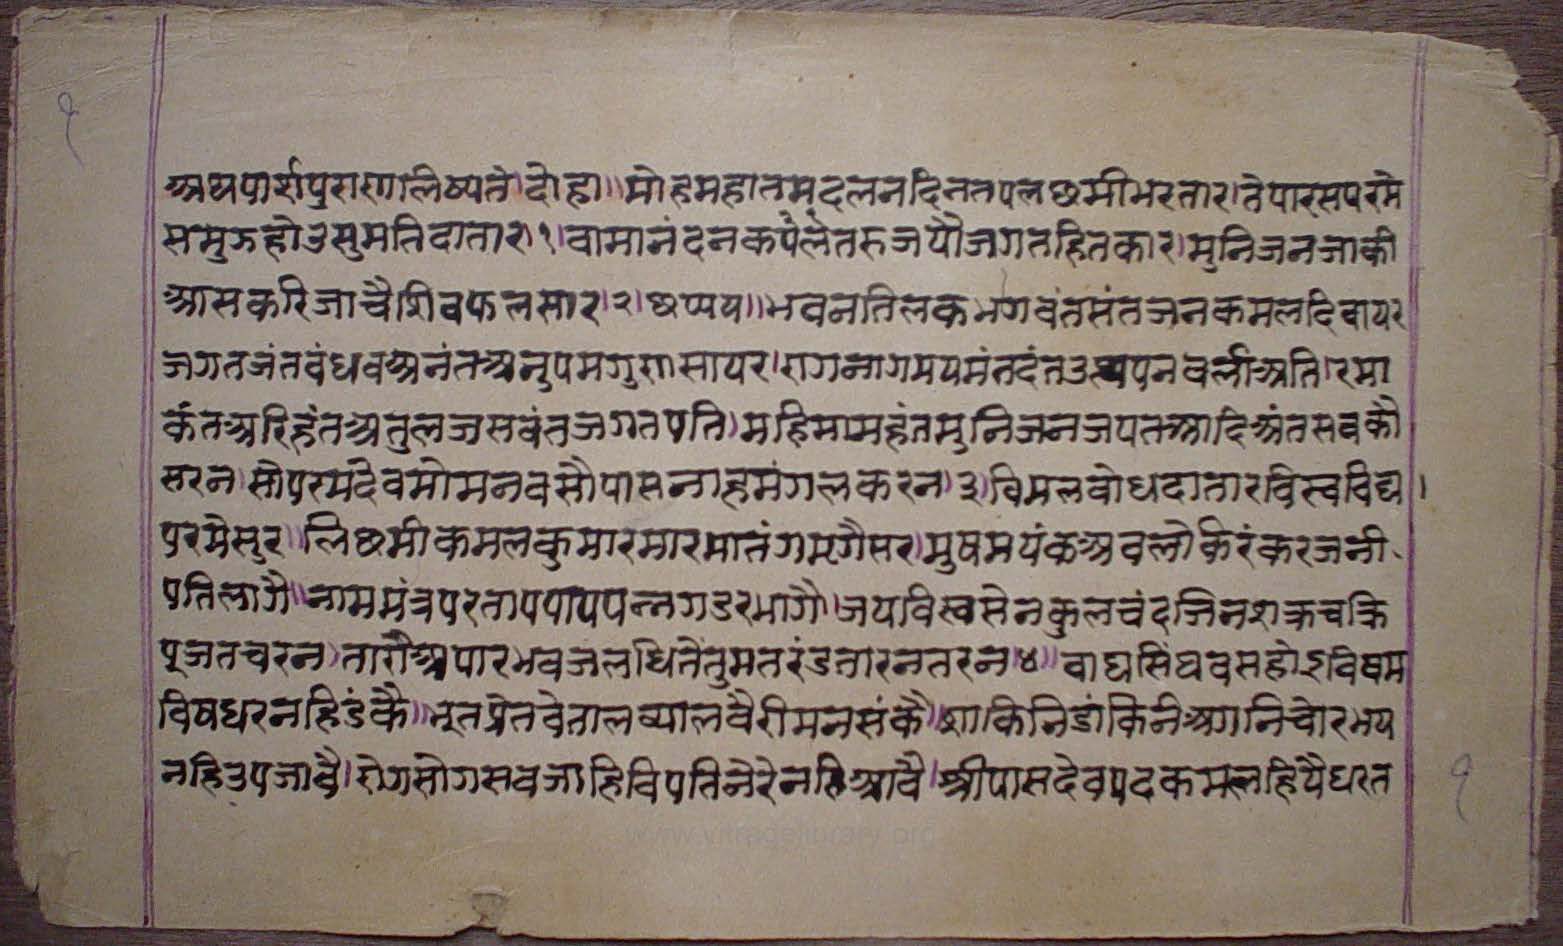 १
अथपार्शपुराणलिष्यते।दोहा॥मोहमहातमदलनदिनतपलछमीभरतार।तेपारसपरमे
समुझहोउसुमतिदातार।१।वामानंदनकपलतरुजयौजगतहितकार।मुनिजनजाकी
आसकरिजाचैशिवफलसार।२।छप्पय॥भवनतिलकभगवंतसंतजनकमलदिवायर
जगतजंतवंधवअनंतअनुपमगुणसायर।रागनागमयमंतदंतउत्थपनवलीअति।रमा
कंतअरिहंतअतुलजसवंतजगतपति।महिमामहंतमुनिजनजपतआदिअंतसवकौ
सरन।सोपरमदेवमोमनवसौपासनाहमंगलकरन।३।विमलवोधदातारविस्वविद्य।
परमेसुर।लिछमीकमलकुमारमारमातंगमृगैसर।मुषमयंकअवलोकिरंकरजनी
पतिलागै॥नाममंत्रपरतापपापपन्नगडरभागै।जयविस्वसेनकुलचंदजिनशक्रचक्रि
पूजतचरन।तारौअपारभवजलधितैंतुमतरंडतारनतरन।४॥वाघसिंघवसहोइविषम
विषधरनहिडंकै॥भूतप्रेतवेतालव्यालवैरीमनसंकै॥शाकिनिडांकिनिअगनिचोरभय
नहिउपजावै।रोगसोगसवजाहिविपतिनेरेनहिआवै।श्रीपासदेवपदकमलहियैधरत
१